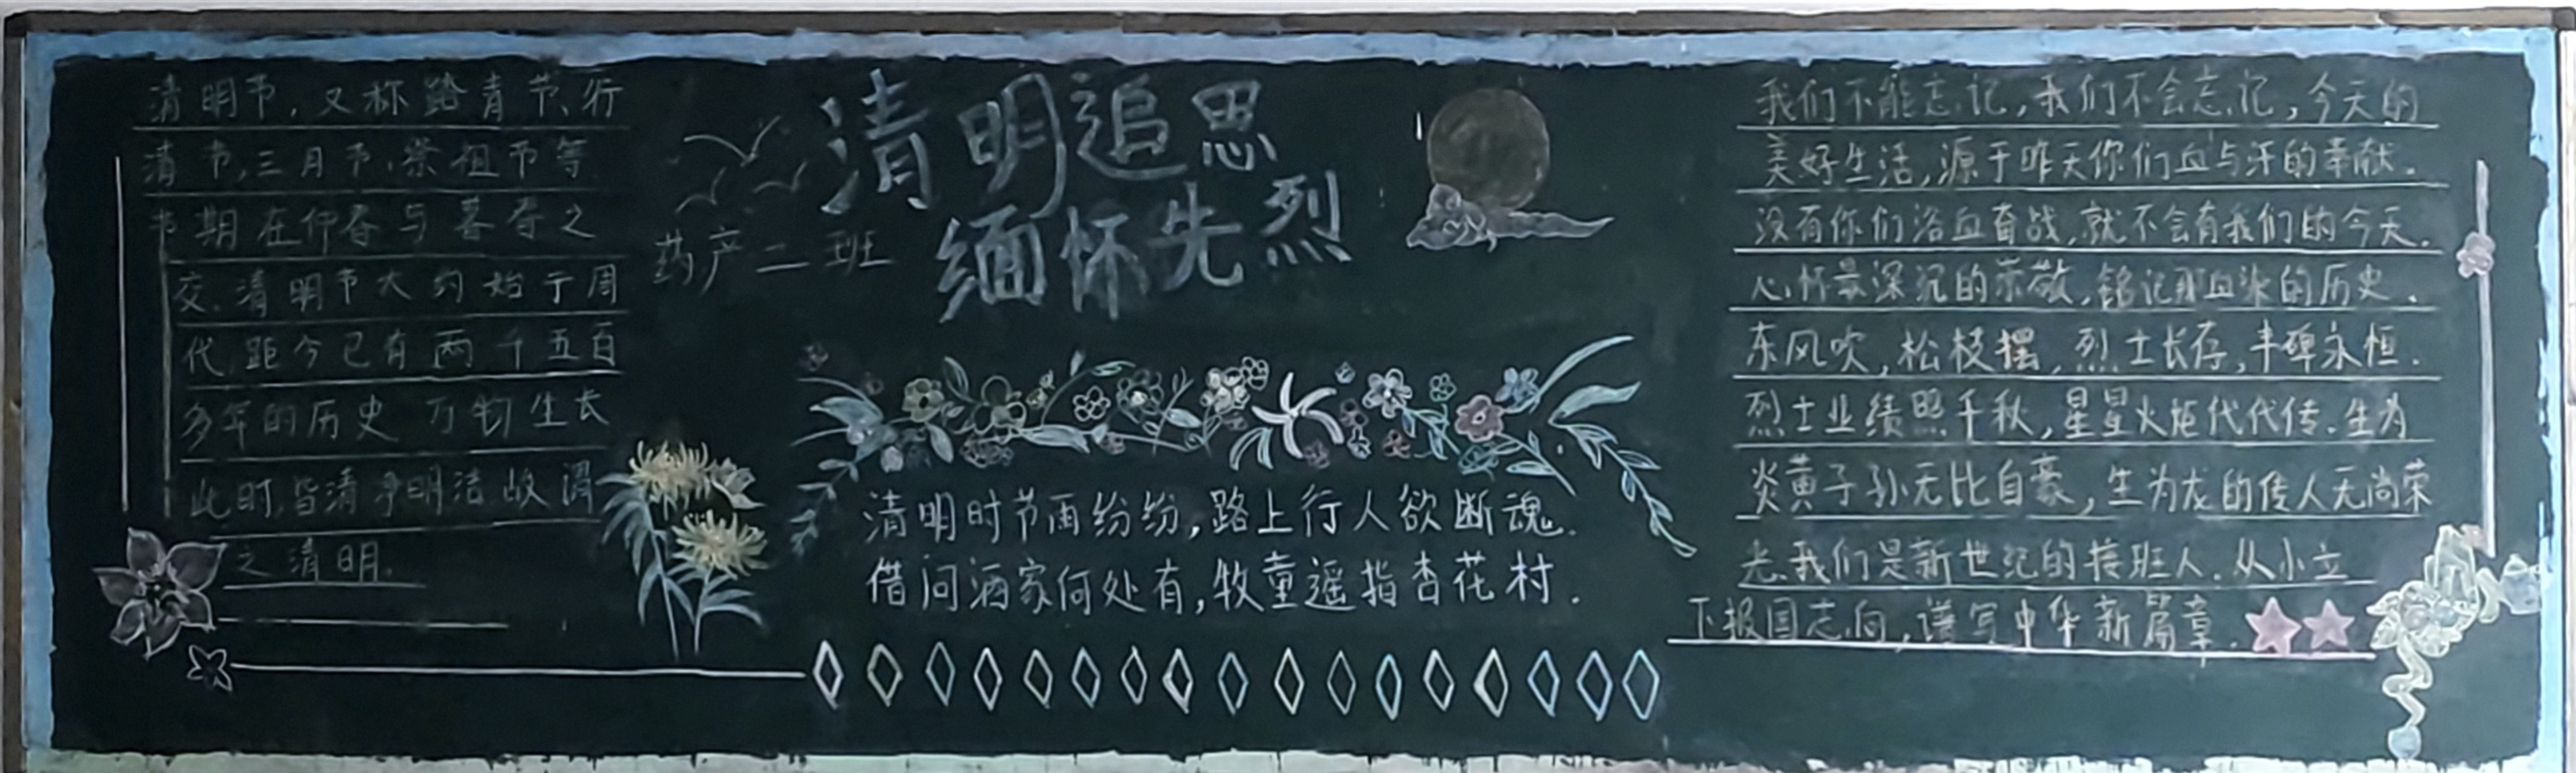 清明节,又称踏青节、行
清节,三月节,祭祖节等.
节期在仲春与暮春之
交.清明节大约始于周
代,距今已有两千五百
多年的历史 万物生长
此时,皆清净明洁故谓
之清明.
清明追思
缅怀先烈
药产二班
清明时节雨纷纷,路上行人欲断魂.
借问酒家何处有,牧童遥指杏花村.
我们不能忘记,我们不会忘记,今天的
美好生活,源于昨天你们血与汗的奉献.
没有你们浴血奋战,就不会有我们的今天.
心怀最深沉的崇敬,铭记那血染的历史.
东风吹,松枝摆,烈士长存,丰碑永恒.
烈士业绩照千秋,星星火炬代代传.生为
炎黄子孙无比自豪,生为龙的传人无尚荣
光.我们是新世纪的接班人.从小立
下报国志向,谱写中华新篇章.